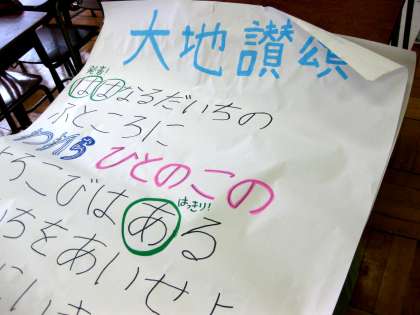 大地讃頌
発音!
ははなるだいちの
ふところに
われら ひとのこの
はっきり!
よろこびはある
ちをあいせよ